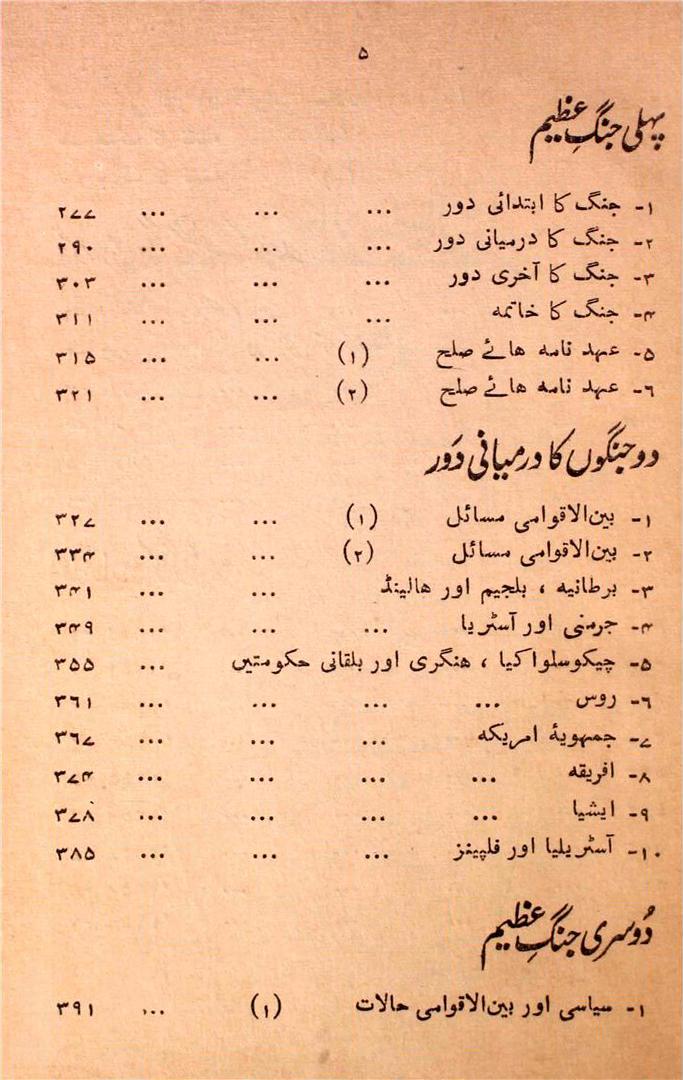 ۵
پہلی جنگِ عظیم
۱- جنگ کا ابتدائی دور ... ... ... ۲۷۷
۲- جنگ کا درمیانی دور ... ... ... ۲۹۰
۳- جنگ کا آخری دور ... ... ... ۳۰۳
۴- جنگ کا خاتمہ ... ... ... ۳۱۱
۵- عہد نامہ ہائے صلح (۱) ... ... ۳۱۵
۶- عہد نامہ ہائے صلح (۲) ... ... ۳۲۱
دو جنگوں کا درمیانی دَور
۱- بین الاقوامی مسائل (۱) ... ... ۳۲۷
۲- بین الاقوامی مسائل (۲) ... ... ۳۳۴
۳- برطانیہ ، بلجیم اور ہالینڈ ... ... ۳۴۱
۴- جرمنی اور آسٹریا ... ... ... ۳۴۹
۵- چیکوسلواکیا ، ہنگری اور بلقانی حکومتیں ... ۳۵۵
۶- روس ... ... ... ... ۳۶۱
۷- جمہویۂ امریکہ ... ... ... ۳۶۷
۸- افریقہ ... ... ... ... ۳۷۴
۹- ایشیا ... ... ... ... ۳۷۸
۱۰- آسٹریلیا اور فلپینز ... ... ... ۳۸۵
دُوسری جنگِ عظیم
۱- سیاسی اور بین الاقوامی حالات (۱) ... ۳۹۱